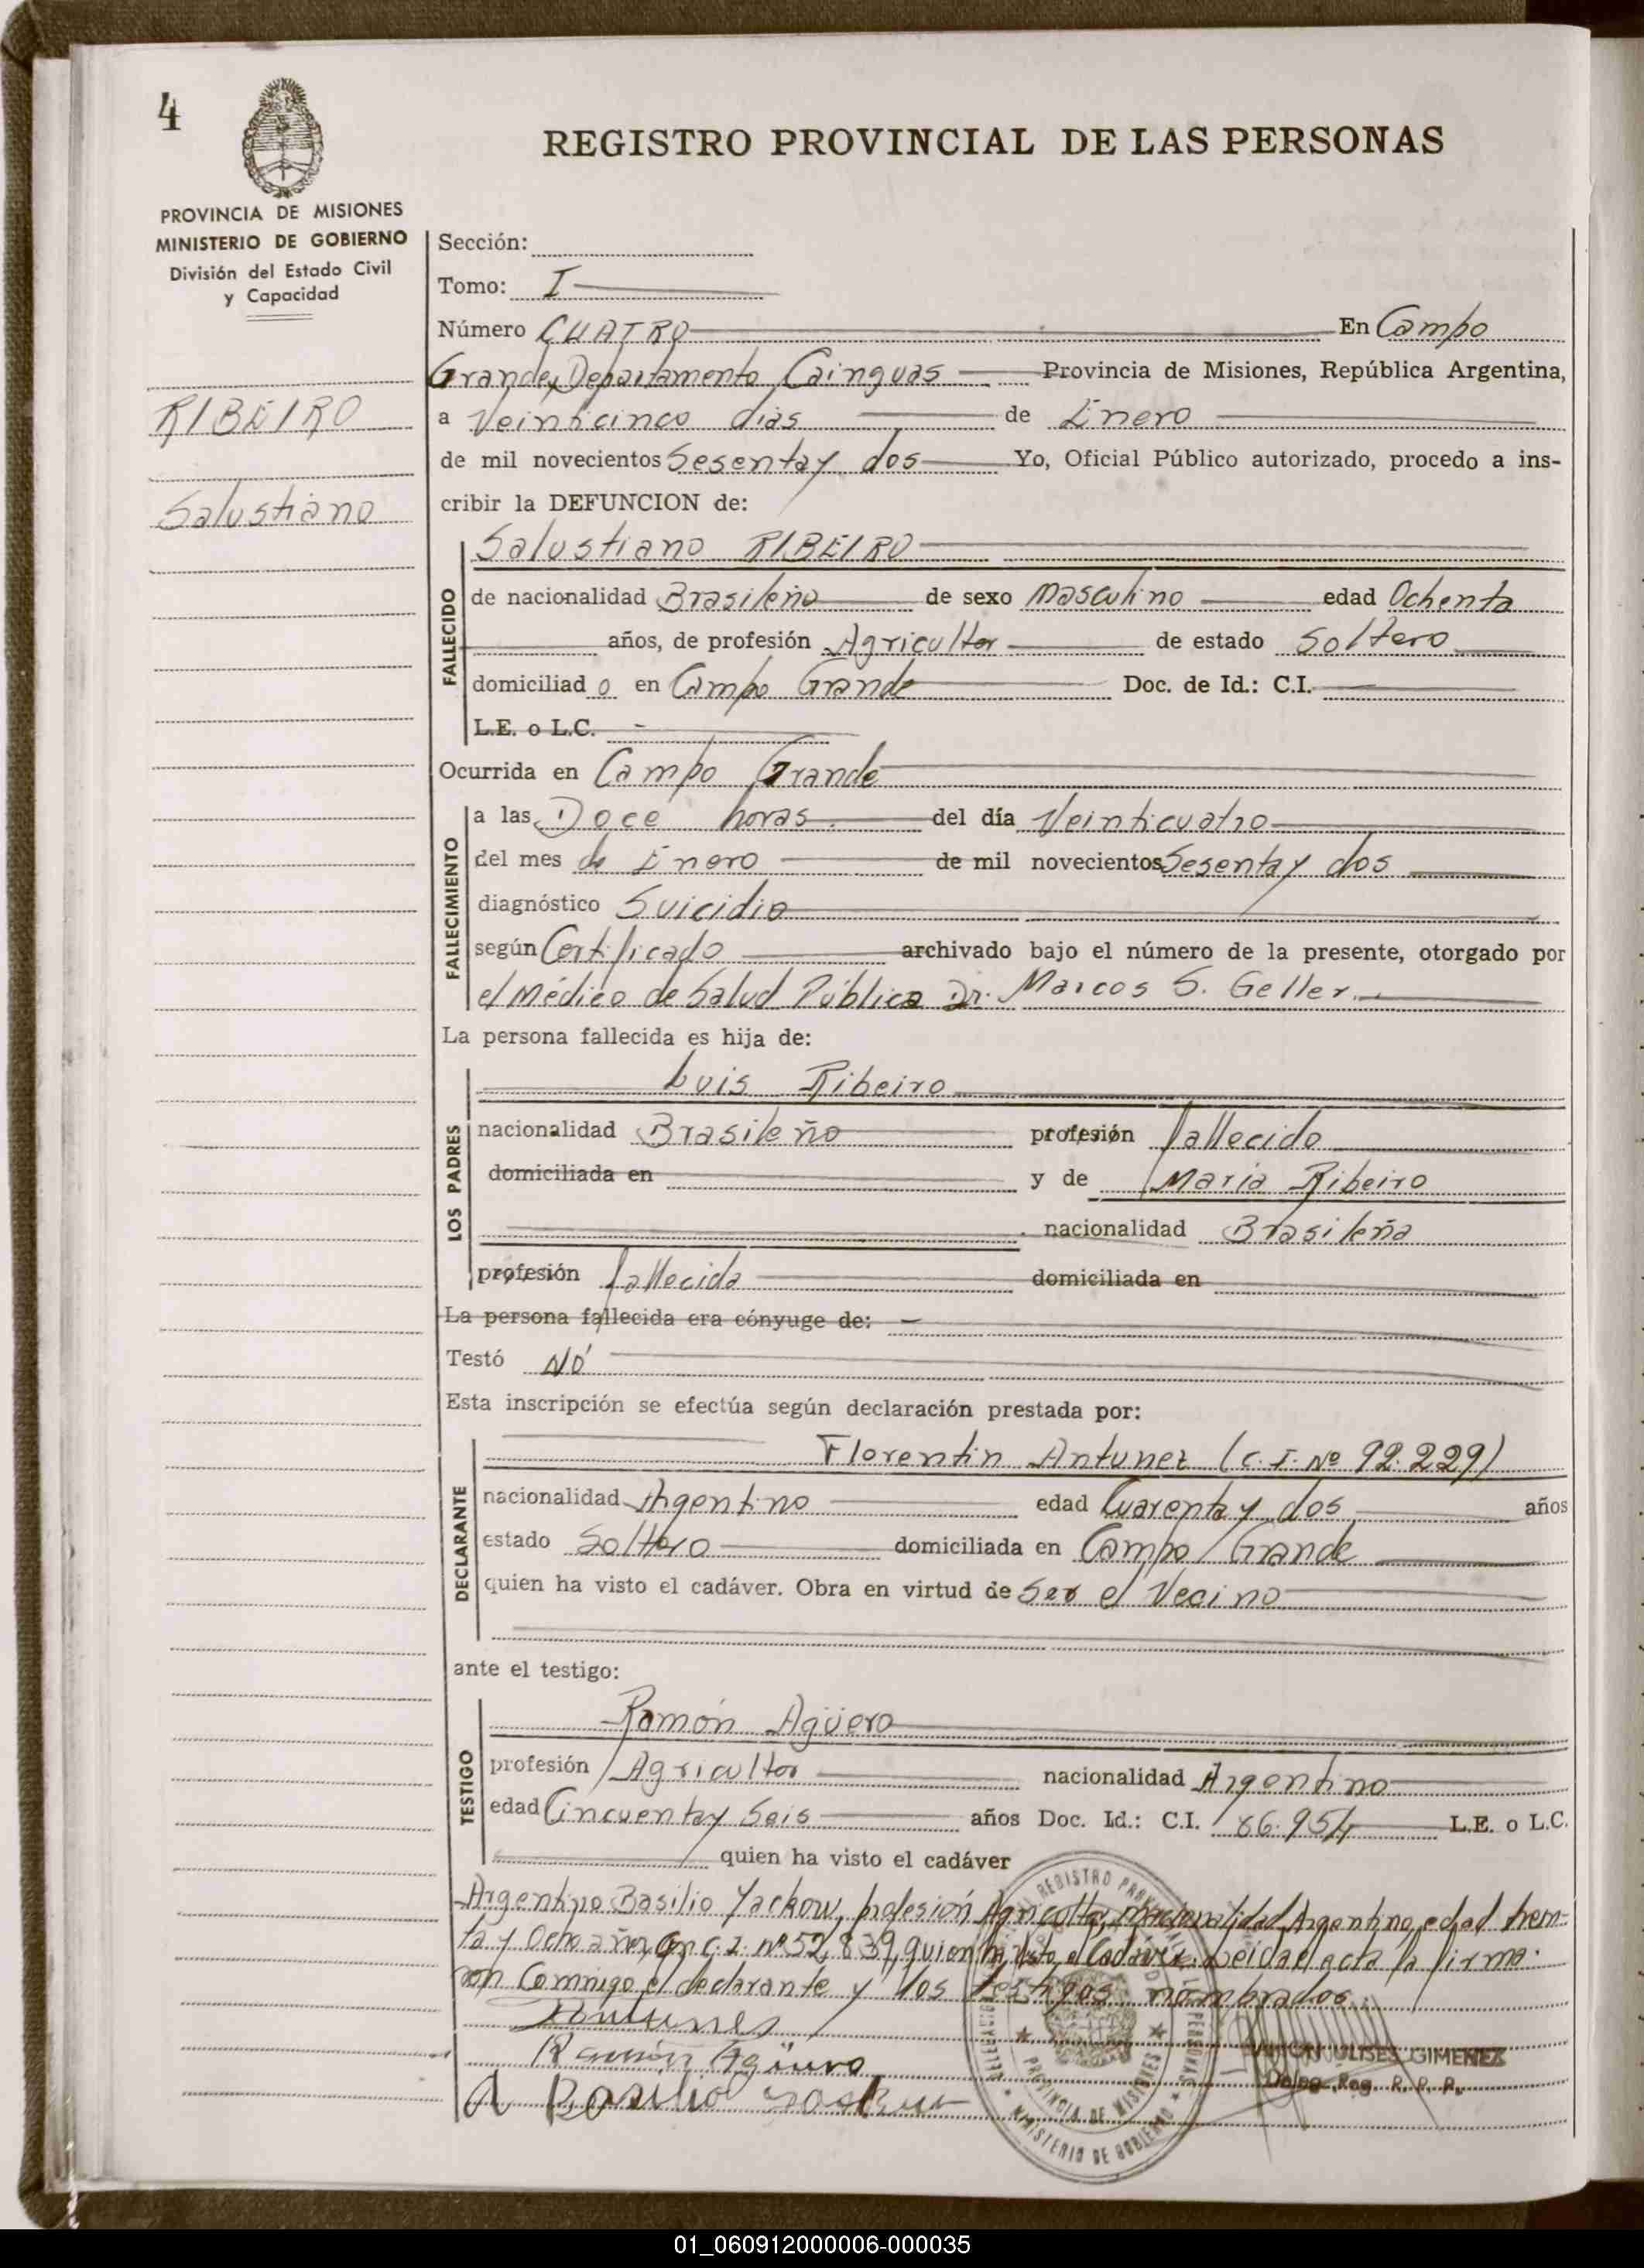 4
REGISTRO PROVINCIAL DE LAS PERSONAS
PROVINCIA DE MISIONES
MINISTERIO DE GOBIERNO
División del Estado Civil
y Capacidad
RIBEIRO
Salustiano
Sección:
Tomo: I
Número CUATRO En Campo
Grande, Departamento Cainguas Provincia de Misiones, República Argentina,
a Veinticinco dias de Enero
de mil novecientos Sesenta y dos Yo, Oficial Público autorizado, procedo a ins-
cribir la DEFUNCION de:
FALLECIDO
Salustiano RIBEIRO
de nacionalidad Brasileño de sexo Masculino edad Ochenta
años, de profesión Agricultor de estado Soltero
domiciliad o en Campo Grande Doc. de Id.: C.I.
L.E. o L.C. -
Ocurrida en Campo Grande
FALLECIMIENTO
a las Doce horas del día Veinticuatro
del mes de Enero de mil novecientos Sesenta y dos
diagnóstico Suicidio
según Certificado archivado bajo el número de la presente, otorgado por
el Médico de Salud Pública Dr. Marcos S. Geller
La persona fallecida es hija de:
LOS PADRES
Luis Ribeiro
nacionalidad Brasileño profesión fallecido
domiciliada en y de María Ribeiro
nacionalidad Brasileña
profesión fallecida domiciliada en
La persona fallecida era cónyuge de: -
Testó NÓ
Esta inscripción se efectúa según declaración prestada por:
DECLARANTE
Florentin Antunez (C.I. Nº 92.229)
nacionalidad Argentino edad Cuarenta y dos años
estado Soltero domiciliada en Campo Grande
quien ha visto el cadáver. Obra en virtud de Ser el Vecino
ante el testigo:
TESTIGO
Ramón Agüero
profesión Agricultor nacionalidad Argentino
edad Cincuenta y Seis años Doc. Id.: C.I. 86.954 L.E. o L.C.
quien ha visto el cadáver
Argentino Basilio Yackow, profesión Agricultor, nacionalidad Argentino, edad trein-
ta y Ocho años, con C.I. nº 52.839, quien ha visto el Cadáver. Leida el acta la firma-
ron Conmigo el declarante y los testigos nombrados.
Antunes
Ramón Agüero
A Basilio
REGISTRO PROVINCIAL DE LAS PERSONAS
PROVINCIA DE MISIONES
MINISTERIO DE GOBIERNO
ULISES GIMENEZ
Deleg. Reg. R. P. P.
01_060912000006-000035